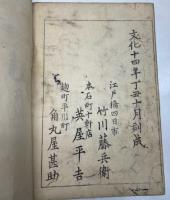 文化十四年丁丑十月刻成
江戸橋四日市
竹川藤兵衛
本石町十軒店
英屋平吉
麹町平川町
角丸屋甚助